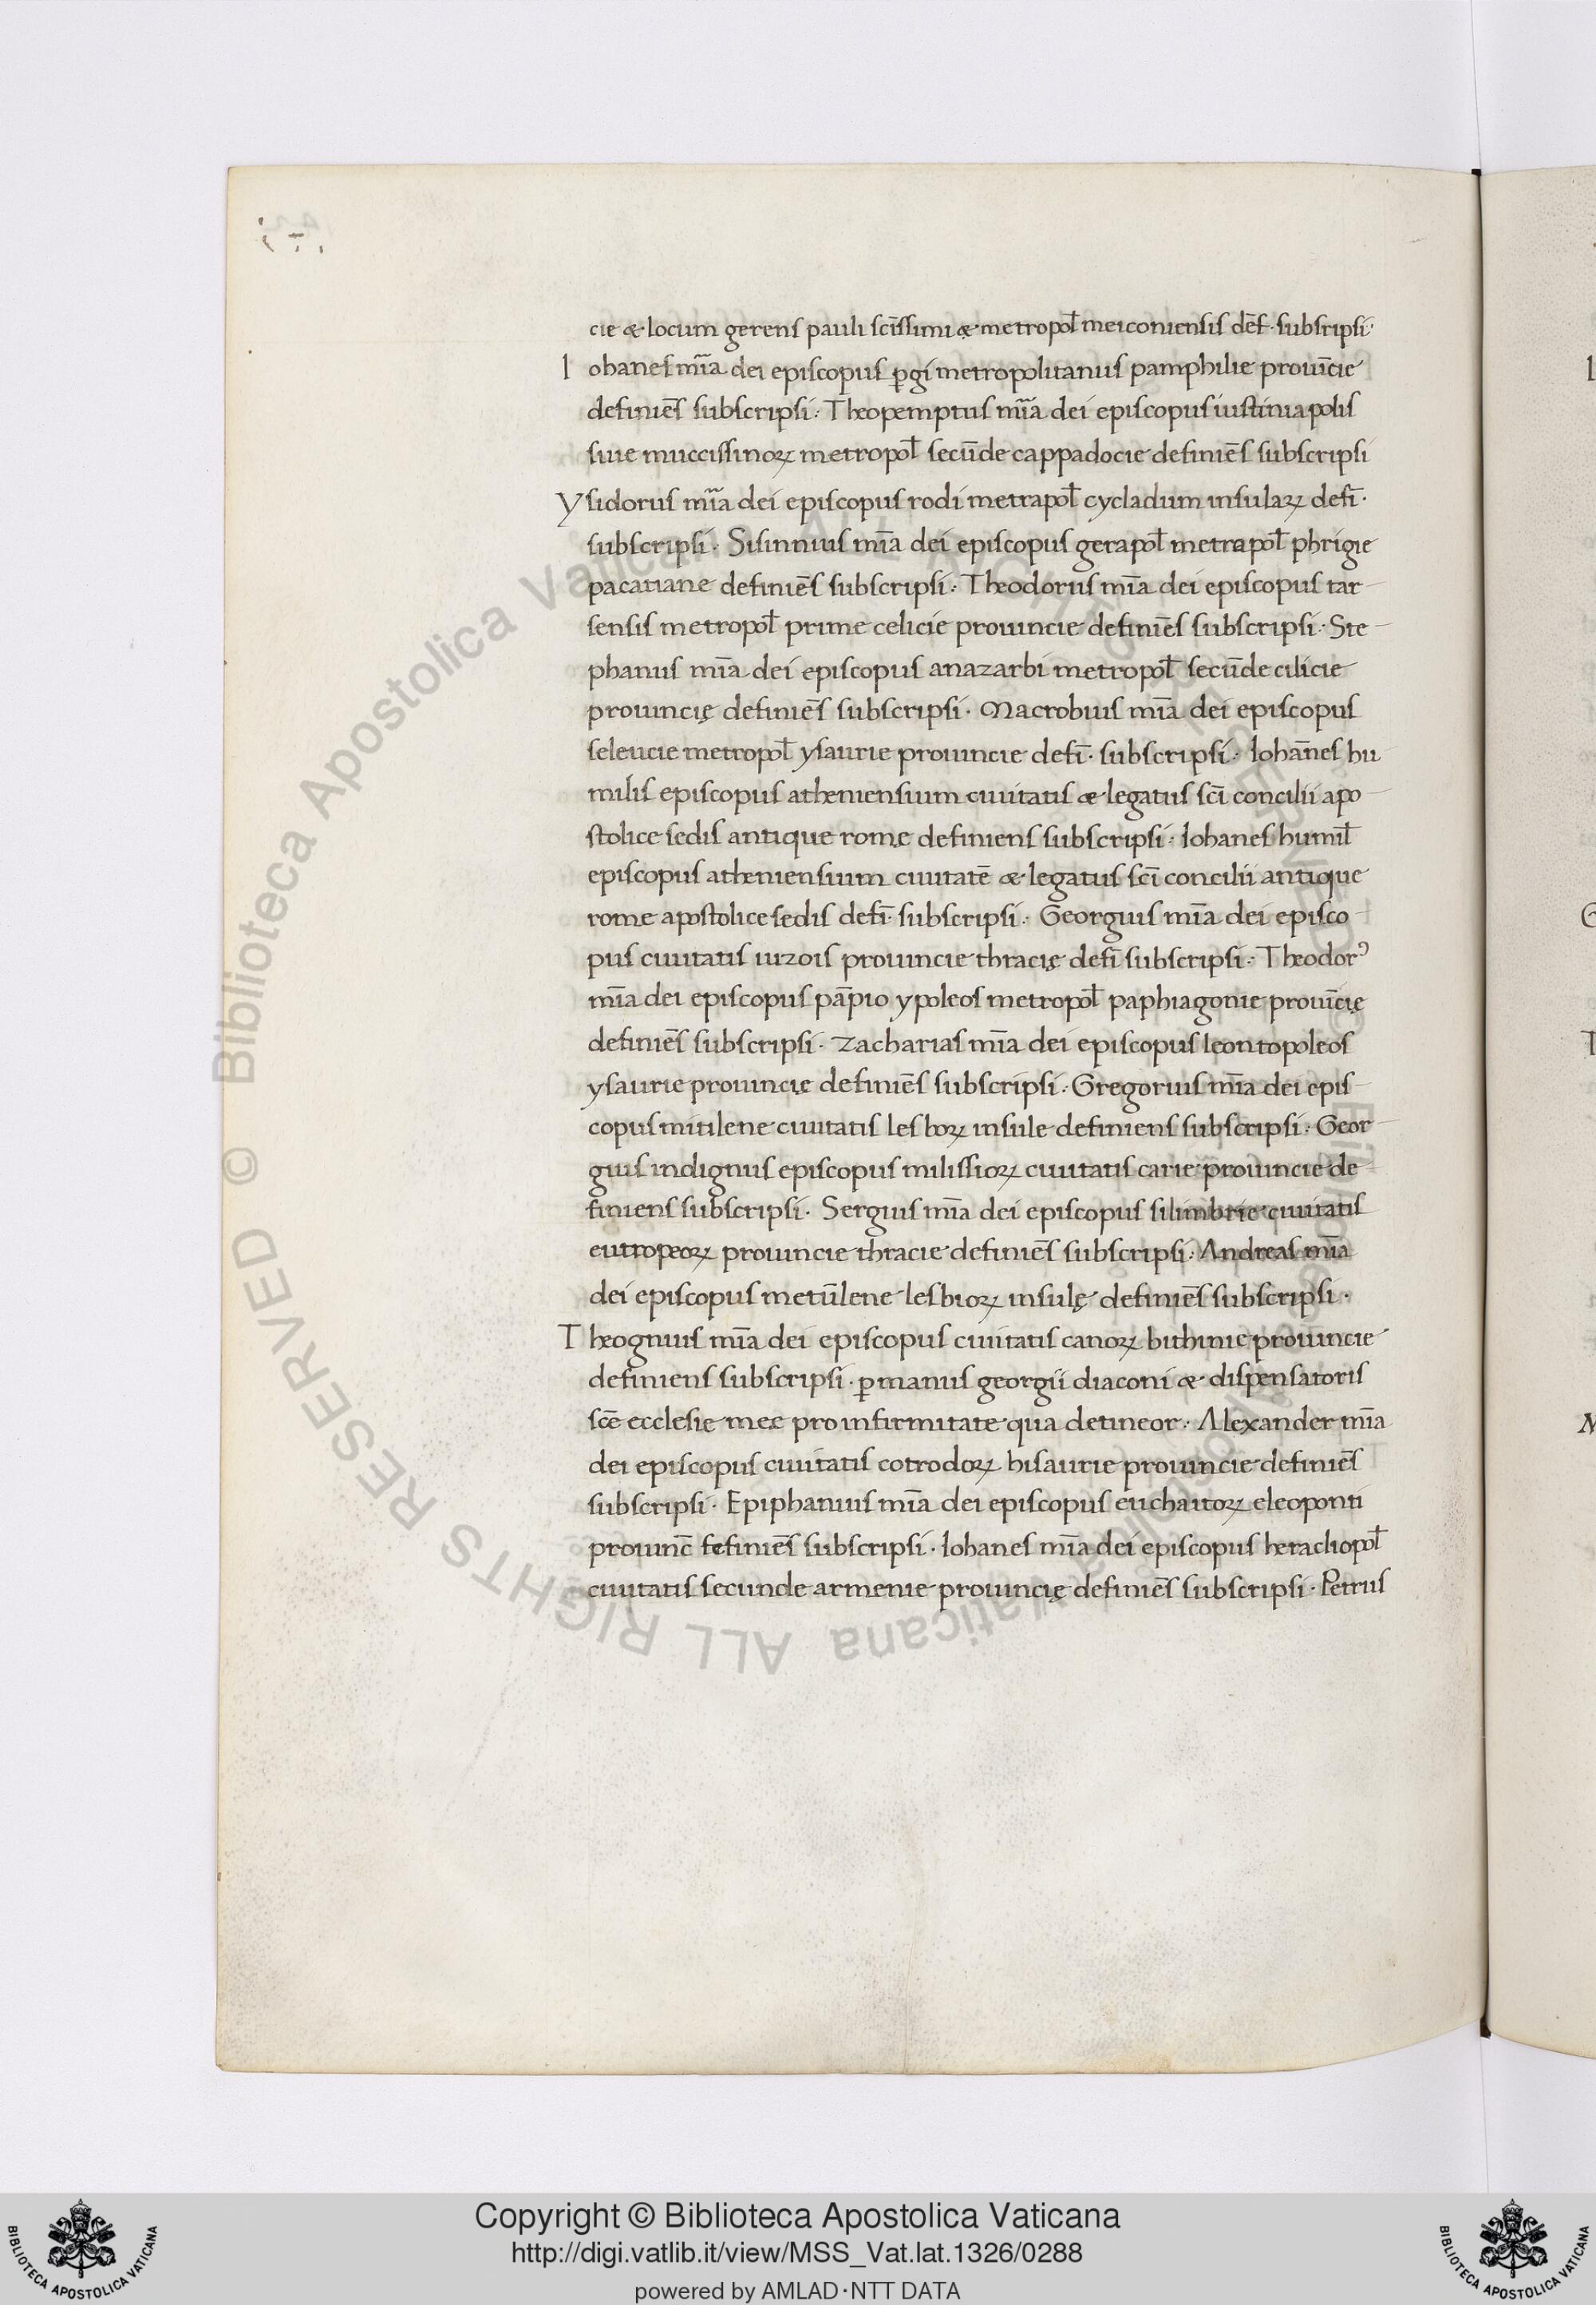 cie & locum gerens pauli scīssimi & metropol̄ meiconiensis dēf. subsripsi.
Iohanes mīa dei episcopus ꝑgi metropolitanus pamphilie prouīcie
definiēs subscripsi. Theopemptus mīa dei episcopus iustiniapolis
siue muccissinoꝝ metropol̄ secūde cappadocie definiēs subscripsi
Ysidorus mīa dei episcopus rodi metrapol̄ cycladum insulaꝝ defī.
subscripsi. Sisinnius mīa dei episcopus gerapol̄ metrapol̄ phrigie
pacatiane definiēs subscripsi. Theodorus mīa dei episcopus tar
sensis metropol̄ prime celicie prouincie definiēs subscripsi. Ste
phanus mīa dei episcopus anazarbi metropol̄ secūde cilicie
prouincię definiēs subscripsi. Macrobius mīa dei episcopus
seleucie metropol̄ ysaurie prouincie defī. subscripsi. Iohānes hu
milis episcopus atheniensium ciuitatis & legatus scī concilii apo
stolice sedis antique romę definiens subscripsi. Iohanes humil̄
episcopus atheniensium ciuitatē & legatus scī concilii antique
rome apostolice sedis defī. subscripsi. Georgius mīa dei episco
pus ciuitatis iuzois prouincie thracię defī subscripsi. Theodorꝰ
mīa dei episcopus pāpio ypoleos metropol̄ paphiagonie prouīcię
definiēs subscripsi. Zacharias mīa dei episcopus leontopoleos
ysaurie prouincię definiēs subscripsi. Gregorius mīa dei epis
copus mitilene ciuitatis lesboꝝ insule definiens subscripsi. Geor
gius indignus episcopus milissioꝝ ciuitatis carie prouincie de
finiens subscripsi. Sergius mīa dei episcopus silimbrie ciuitatis
eutropeoꝝ prouincie thracie definiēs subscripsi. Andreas mīa
dei episcopus metūlene lesbioꝝ insulę definiēs subscripsi.
Theognius mīa dei episcopus ciuitatis canoꝝ bithinie prouincie
definiens subscripsi. ꝑ manus georgii diaconi & dispensatoris
scē ecclesie mee pro infirmitate qua detineor. Alexander mīa
dei episcopus ciuitatis cotrodoꝝ hisaurie prouincie definiēs
subscripsi. Epiphanius mīa dei episcopus euchaitoꝝ eleoponti
prouinc̄ fefiniēs subscripsi. Iohanes mīa dei episcopus heracliopol̄
ciuitatis secunde armenie prouincię definiēs subscripsi. Petrus
© Biblioteca Apostolica Vaticana ALL RIGHTS RESERVED
Copyright © Biblioteca Apostolica Vaticana
http://digi.vatlib.it/view/MSS_Vat.lat.1326/0288
powered by AMLAD·NTT DATA
BIBLIOTECA APOSTOLICA VATICANA
BIBLIOTECA APOSTOLICA VATICANA